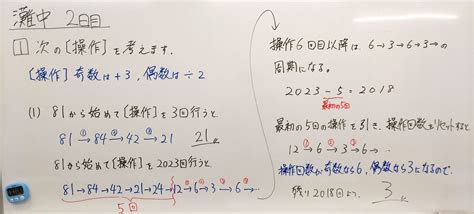 灘中 2日目
1 次の[操作]を考えます.
[操作]奇数は+3, 偶数は÷2
(1) 81から始めて[操作]を3回行うと
81 →① 84 →② 42 →③ 21 21
81から始めて[操作]を2023回行うと
81→84→42→21→24→12→①6→②3→③6→④…
5回
操作6回目以降は, 6→3→6→3→の
周期になる。
2023 − 5 = 2018
最初の5回
最初の5回の操作を引き, 操作回数をリセットすると
12 →① 6 →② 3 →③ 6 …
操作回数が奇数なら6, 偶数なら3になるので
残り2018回より, 3